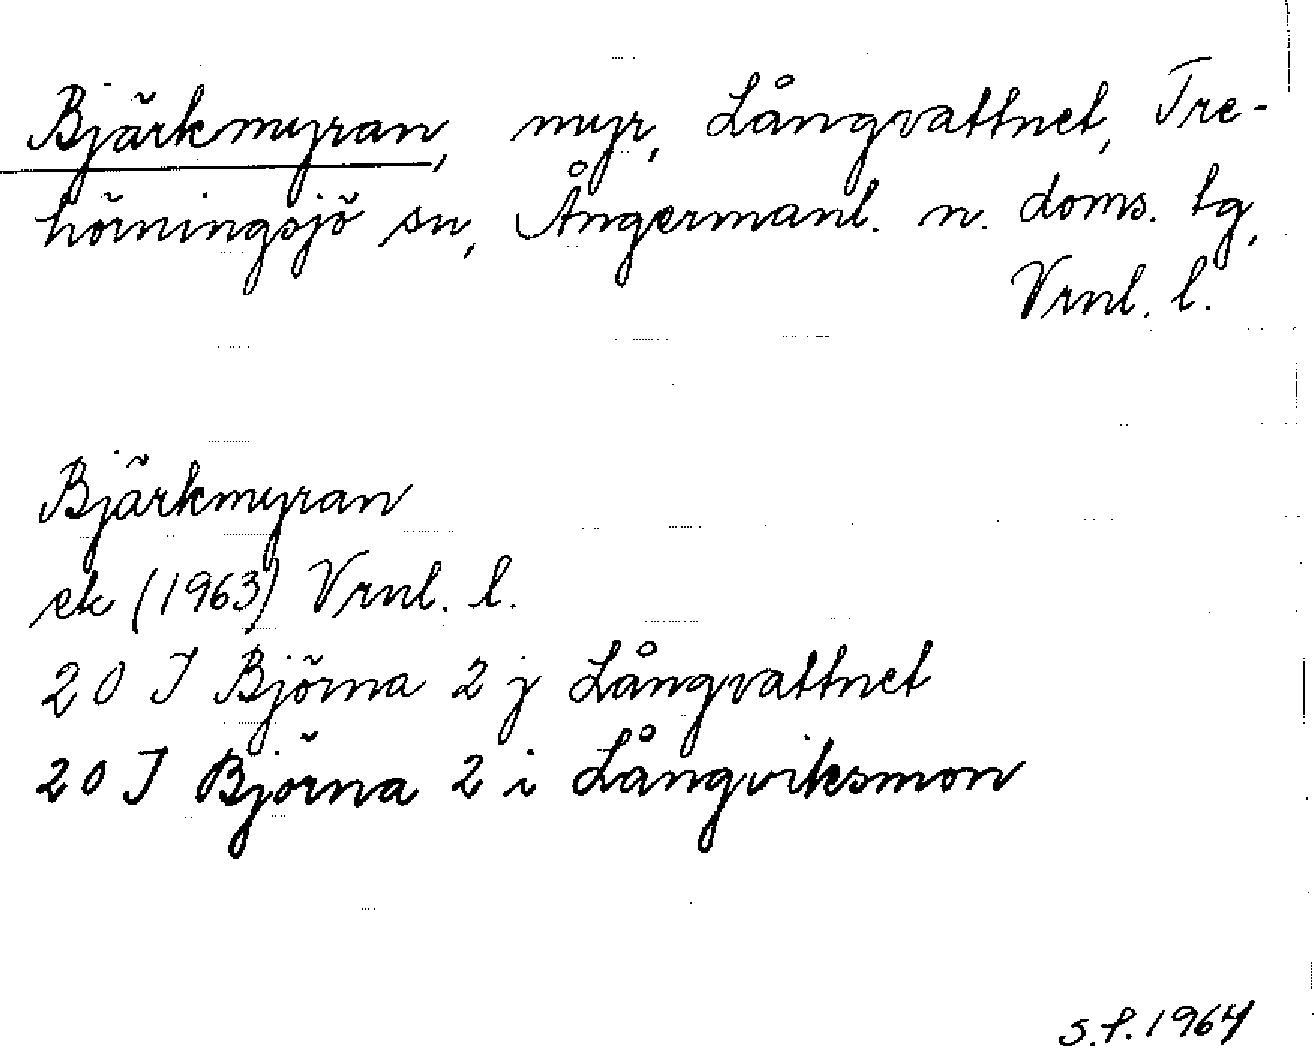 Bjärkmyran, myr, Långvattnet, Tre-
hörningsjö sn, Ångermanl. n. doms. tg,
Vrnl. l.
Bjärkmyran
ek (1963) Vrnl. l.
20 J Björna 2 j Långvattnet
20 J Björna 2 i Långviksmon
S.f. 1964